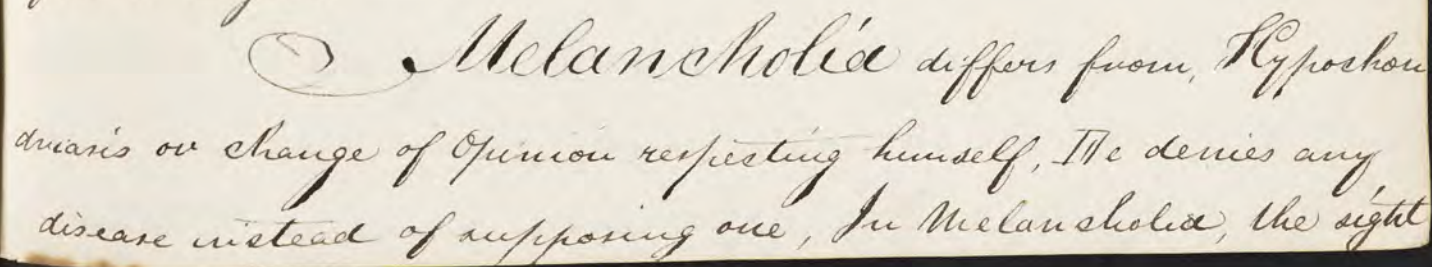 Melancholia differs from, Hypochon
driasis or change of Opinion respecting himself, He denies any
disease instead of supposing one, In Melancholia, the sight